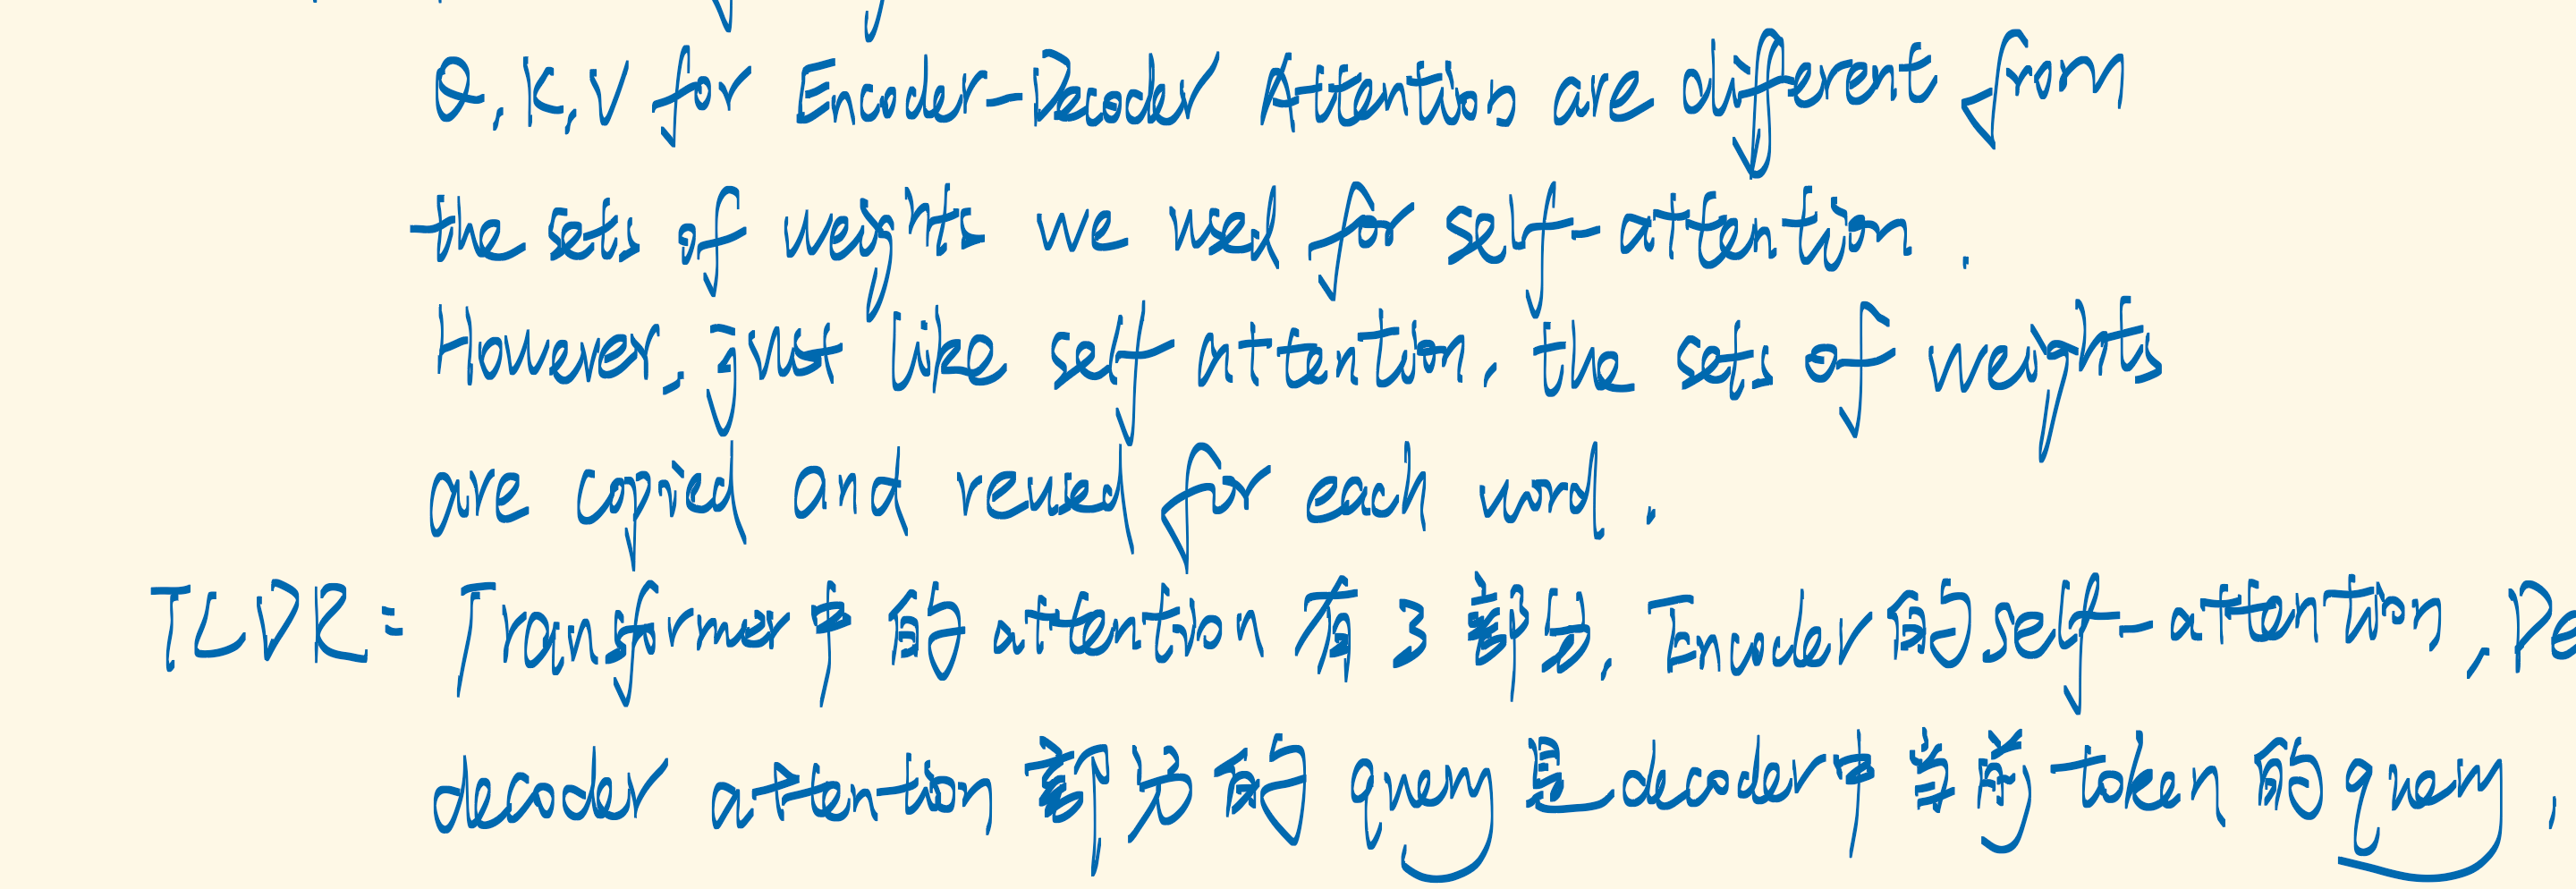 Q, K, V for Encoder-Decoder Attention are different from
the sets of weights we used for self-attention.
However, just like self attention, the sets of weights
are copied and reused for each word.
TLDR: Transformer中的attention有3部分, Encoder的self-attention, De
decoder attention部分的query是decoder中当前token的query,